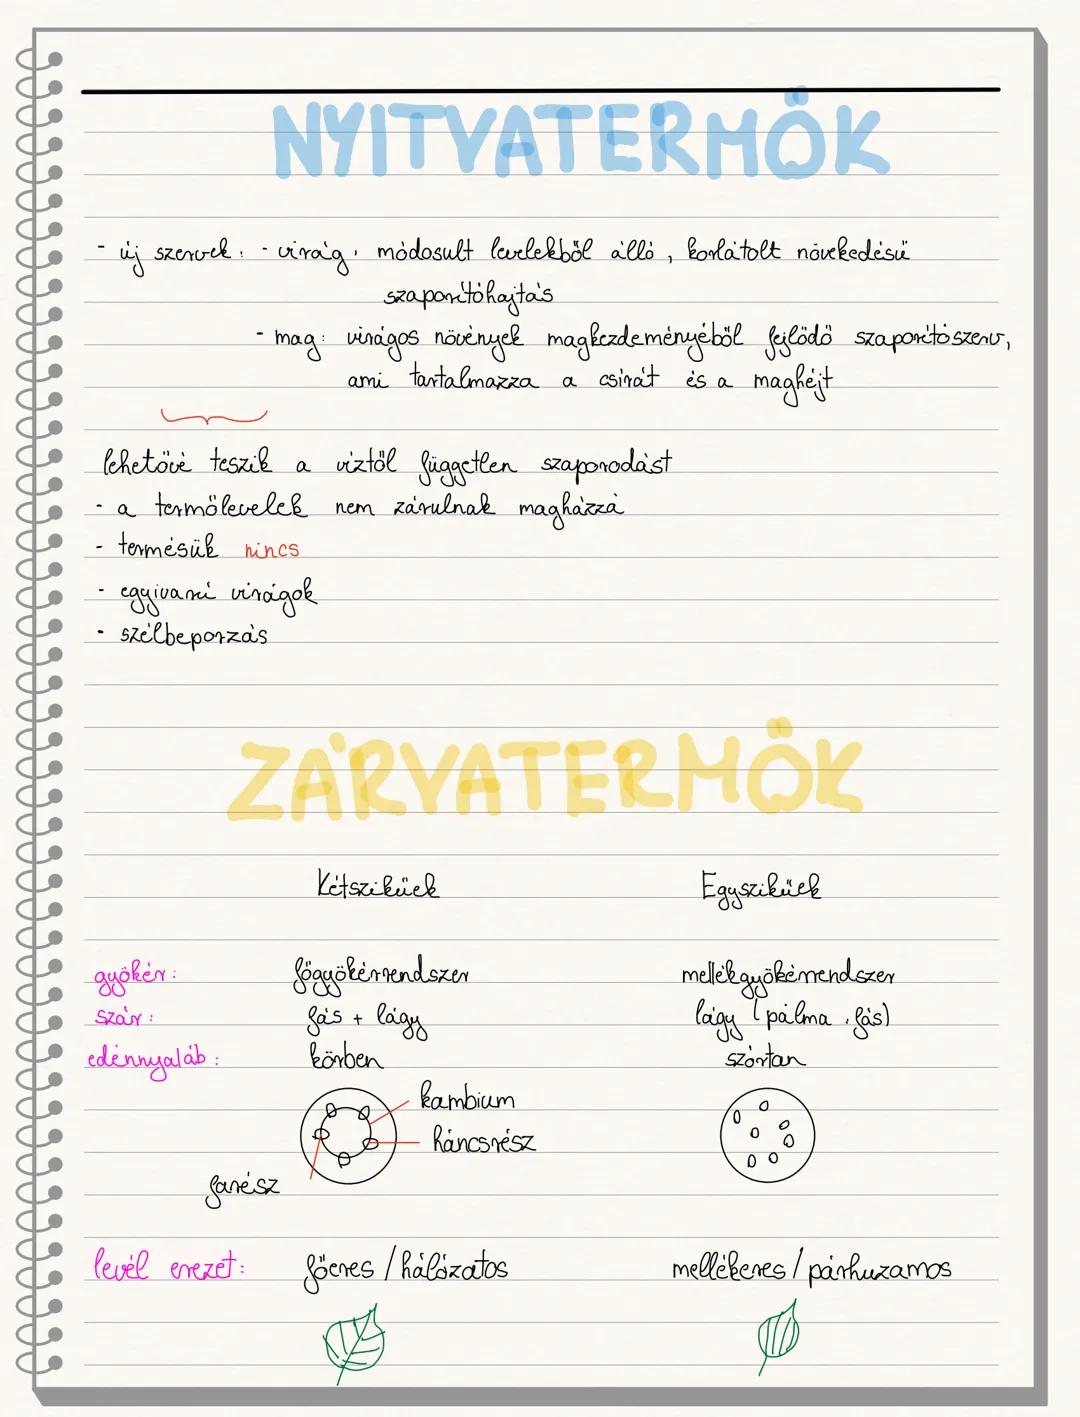 NYITVATERMŐK
- új szervek: - virág: módosult levelekből álló, korlátolt növekedésű
szaporítóhajtás
- mag: virágos növények magkezdeményéből fejlődő szaporítószerv,
ami tartalmazza a csírát és a maghéjt
lehetővé teszik a víztől független szaporodást
- a termőlevelek nem zárulnak magházzá
- termésük nincs
- egyivarú virágok
- szélbeporzás
ZÁRVATERMŐK
Kétszikűek Egyszikűek
gyökér: főgyökérrendszer mellékgyökérrendszer
szár: fás + lágy lágy (pálma: fás)
edénnyaláb: körben szórtan
kambium
háncsrész
farész
levél erezet: főeres / hálózatos mellékeres / párhuzamos